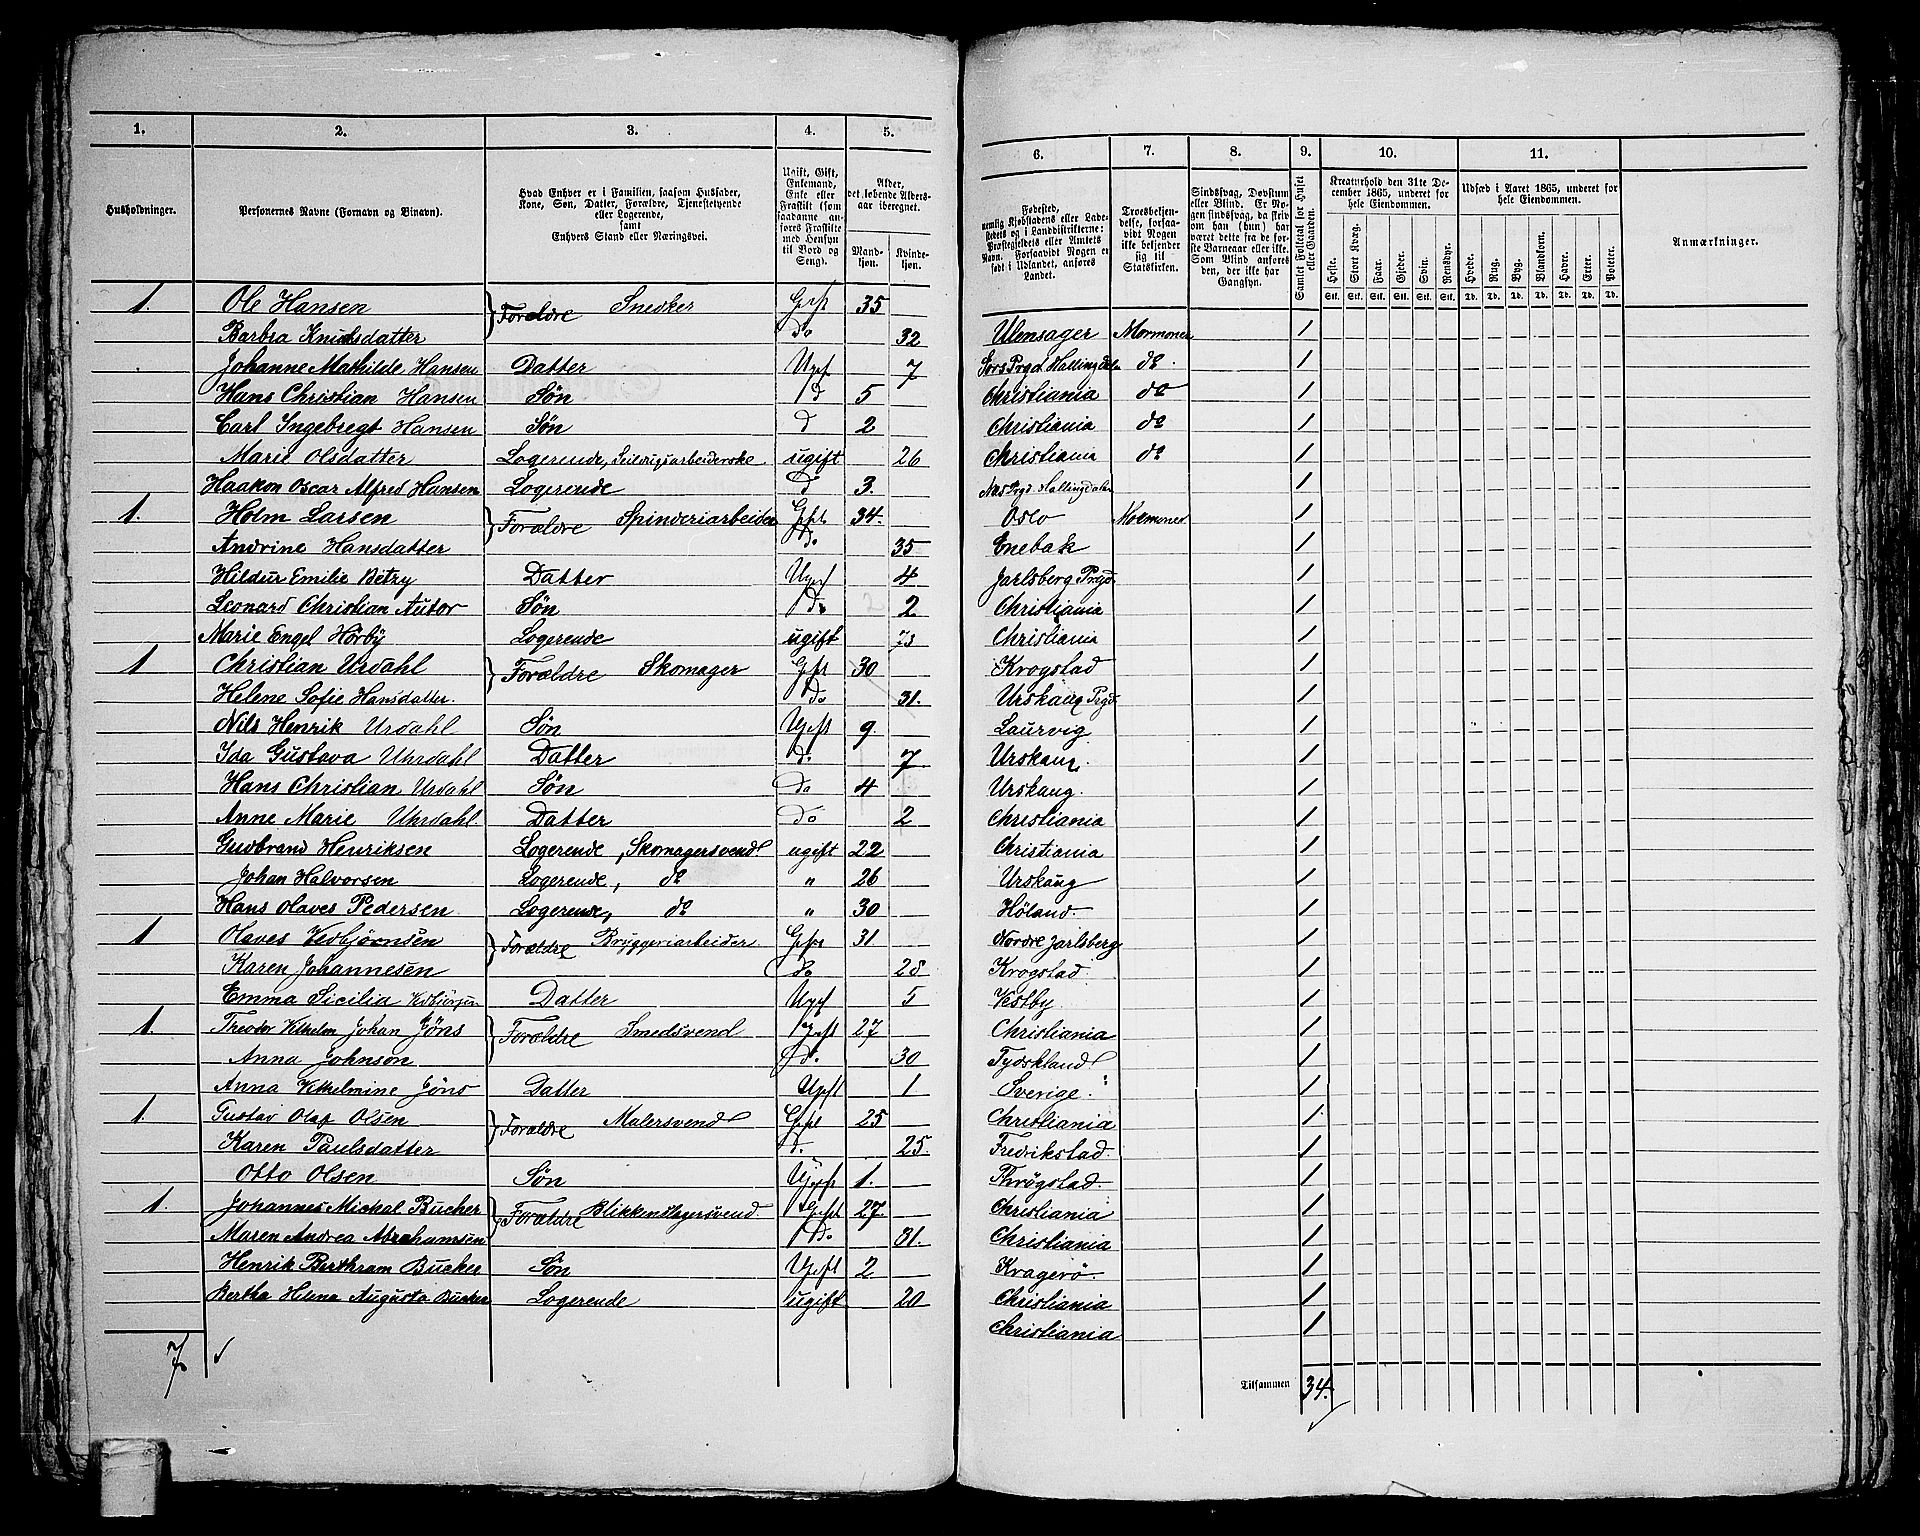 1. 2. 3. 4. 5.
Husholdninger. Personernes Navne (Fornavn og Binavn). Hvad Enhver er i Familien, saasom Husfader, Kone, Søn, Datter, Forældre, Tjenestetyende eller Logerende, samt Enhvers Stand eller Næringsvei. Ugift, Gift, Enkemand, Enke eller Fraskilt (som saadanne anføres Fraskilte med Hensyn til Bord og Seng). Alder, det løbende Aldersaar iberegnet. Mandkjøn. Kvindekjøn.
1. Ole Hansen Forældre Snedker Gift 35
Barbra Knudsdatter do 32
Johanne Mathilde Hansen Datter Ugift 7
Hans Christian Hansen Søn d 5
Carl Ingebregt Hansen Søn d 2
Marie Olsdatter Logerende, ugift 26
Haakon Oscar Alfred Hansen Logerende d 3.
1. Holm Larsen Forældre Spinderiarbeider Gift 34.
Andrine Hansdatter do 35
Hildur Emilie Betzy Datter Ugift 4
Leonard Christian Autor Søn do 2
Marie Engel Hörby Logerende ugift 73
1 Christian Urdahl Forældre Skomager Gift 30
Helene Sofie Hansdatter. Do 31.
Nils Henrik Urdahl Søn Ugift 9.
Ida Gustava Uhrdahl Datter do 7
Hans Christian Urdahl Søn do 4
Anne Marie Uhrdahl. Datter do 2
Gudbrand Henriksen Logerende, Skomagersvend ugift 22
Johan Halvorsen Logerende, do " 26
Hans Olaves Pedersen. Logerende, do " 30
1 Olaves Vedbjørnsen Forældre Bryggeriarbeider Gift 31
Karen Johannesen do 28
Emma Sicilia Datter Ugift 5
1. Theodor Vilhelm Johan Jöns Forældre Smedsvend Gift 27
Anna Johnson do. 30
Anna Vilhelmine Jöns Datter Ugift 1
1. Gustav Olaf Olsen Forældre Malersvend Gift 25
Karen Paulsdatter d. 25.
Otto Olsen Søn Ugift 1.
1. Johannes Michal Bucher Forældre Blikkenslagersvend. Gift 27.
Maren Andrea Abrahamsen Do. 31.
Henrik Berthram Bucher Søn Ugift 2
Bertha Helena Augusta Bucher Logerende ugift 20
7
6. 7. 8. 9. 10. 11.
Fødested, nemlig Kjøbstadens eller Ladestedets og i Landdistrikterne: Præstegjeldets eller Amtets Navn. Forsaavidt Nogen er født i Udlandet, anføres Landet. Troesbekjendelse, forsaavidt Nogen ikke bekjender sig til Statskirken. Sindssvag, Døvstum eller Blind. Er Nogen sindssvag, da skrives om han (hun) har været dette fra de første Barneaar eller ikke. Som Blind anføres den, der ikke har Gangsyn. Samlet Folketal for Huset eller Gaarden. Kreaturhold den 31te December 1865, underet for hele Eiendommen. Udsæd i Aaret 1865, underet for hele Eiendommen. Anmærkninger.
Heste. Stort Kvæg. Faar. Gjeder. Svin. Rensdyr. Hvede. Rug. Byg. Blandkorn. Havre. Erter. Poteter.
Stk. Stk. Stk. Stk. Stk. Stk. Td. Td. Td. Td. Td. Td. Td.
Ulensager Mormoner 1
Hallingdalen do. 1
Christiania do 1
Christiania do 1
Christiania do 1
Hallingdalen 1
Oslo Mormoner. 1
Enebak 1
Jarlsberg Prgd. 1
Christiania 1
Christiania 1
Krogstad 1
Urskaug Prgd. 1
Laurvig 1
Urskaug. 1
Urskaug. 1
Christiania 1
Christiania 1
Urskaug 1
Höland. 1
Nordre Jarlsberg 1
Krogstad. 1
Vestby. 1
Christiania 1
Tydskland 1
Sverige. 1
Christiania 1
Fredrikstad. 1
Thrögstad. 1
Christiania 1
Christiania 1
Kragerö. 1
Christiania 1
Christiania 1
Tilsammen 34.